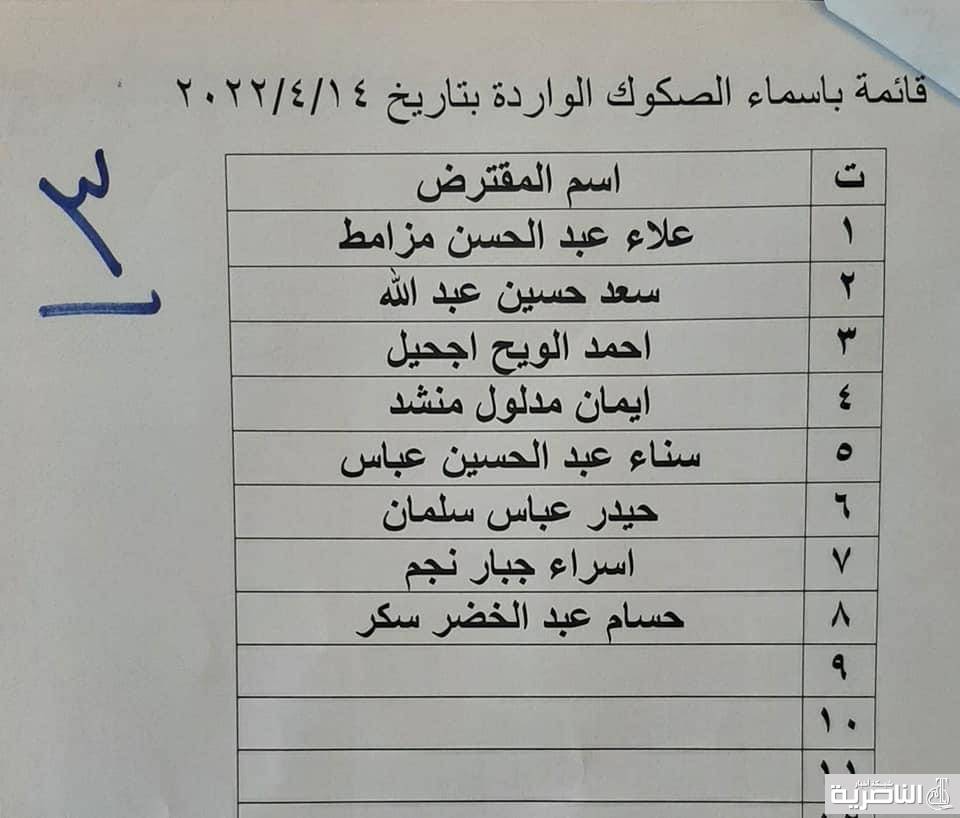 قائمة باسماء الصكوك الواردة بتاريخ ٢٠٢٢/٤/١٤
ت اسم المقترض
١ علاء عبد الحسن مزامط
٢ سعد حسين عبد الله
٣ احمد الويح اجحيل
٤ ايمان مدلول منشد
٥ سناء عبد الحسين عباس
٦ حيدر عباس سلمان
٧ اسراء جبار نجم
٨ حسام عبد الخضر سكر
٩
١٠
١١
٣
شبكة اخبار
الناصرية